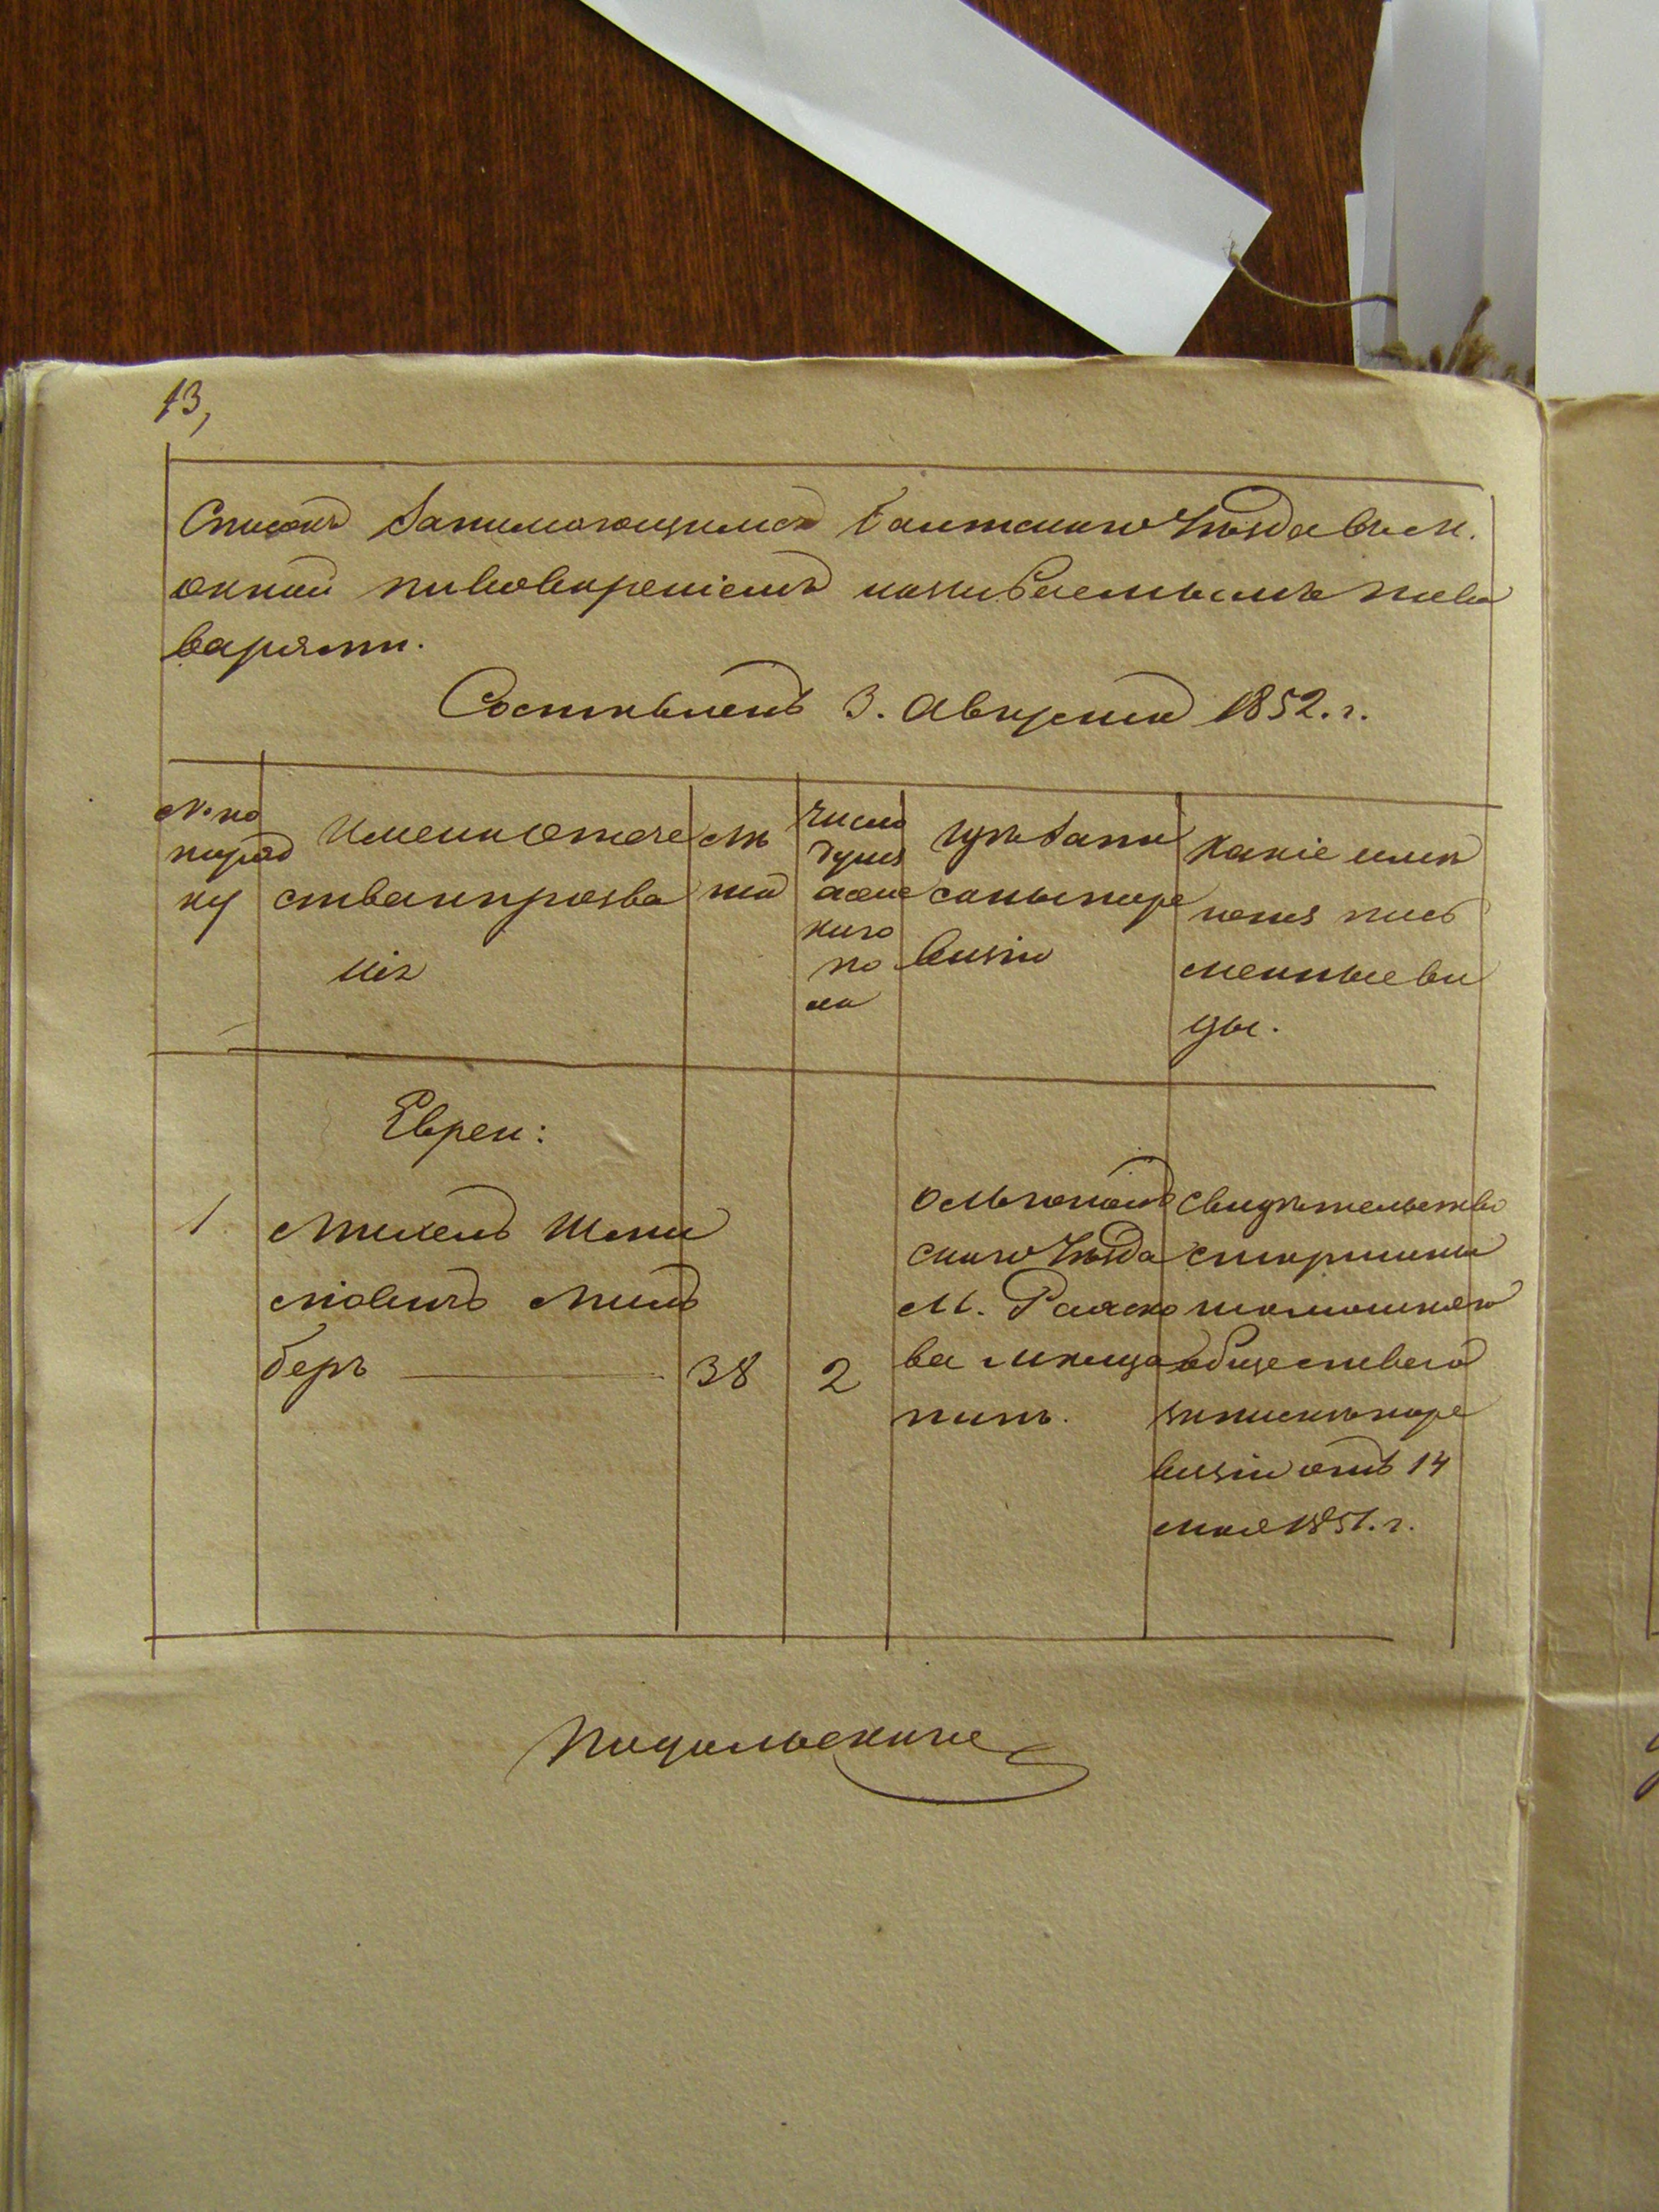 13,
Списокъ занимающимся Балтскаго Уѣзда въ м.
окной пивовареніемъ называемымъ пиво
варами.
Составленъ 3. Августа 1852. г.
№ по
поряд
ку
Имена отече
ства и прозва
нія
лѣ
та
число
душъ
жене
каго
по
ла
гдѣ запи
саны по ре
визіи
какіе имѣ
ютъ пись
менные ви
ды.
Евреи:
1 Михель Шми
лiовичъ Миль
беръ 38 2
Ольгополь
скаго Уѣзда
м. Рашко
ва мѣща
нинъ.
свидѣтельство
старшины
тамошняго
общества о
запискѣ по ре
визіи отъ 14
мая 1851. г.